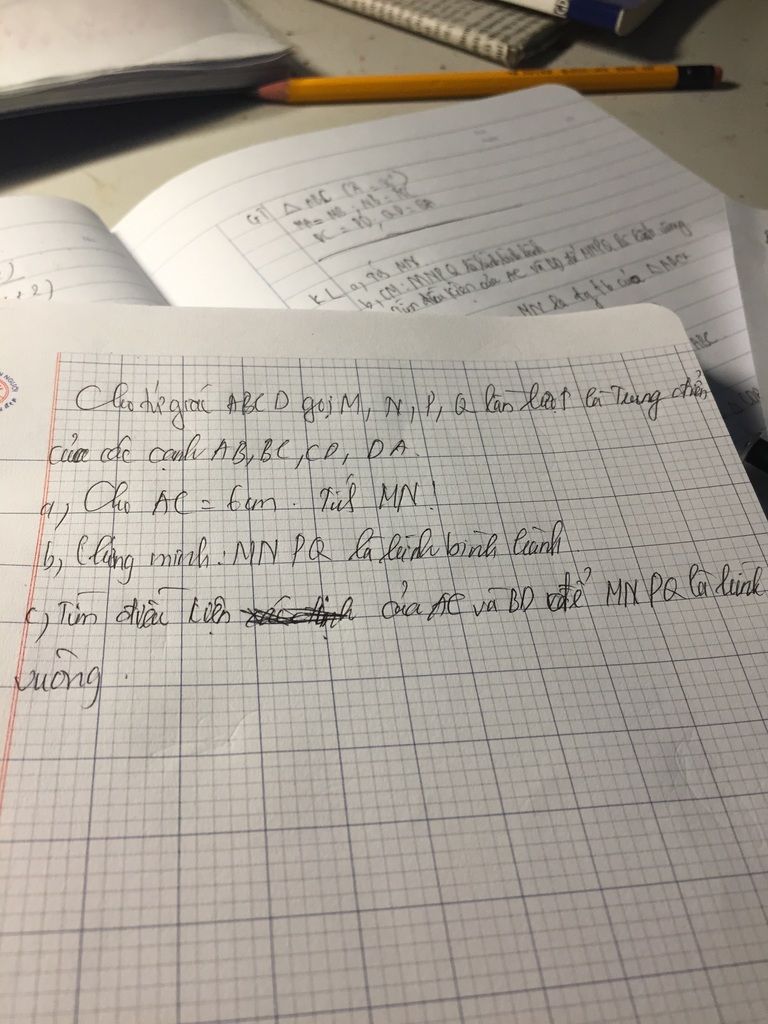 GT △ ABC
MA = MB ; NB = NC
PC = PD, QD = QA
KL a, Tính MN
b, CM: MNPQ là hình bình hành
MN là đg tb của △ ABC
Cho tứ giác ABCD gọi M, N, P, Q lần lượt là Trung điểm
của các cạnh AB, BC, CD, DA.
a, Cho AC = 6cm. Tính MN!
b, Chứng minh: MNPQ là hình bình hành.
c, Tìm điều kiện của AC và BD để MNPQ là hình
vuông.